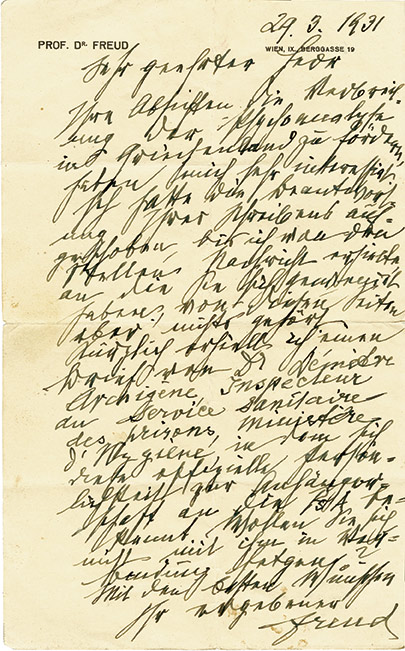 29. 3. 1931
PROF. DR. FREUD
WIEN, IX., BERGGASSE 19
Sehr geehrter Herr
Ihre Absichten die Verbreit-
ung der Psychoanalyse
in Griechenland zu fördern,
haben mich sehr interessirt
Ich hatte die Beantwort-
ung Ihres Schreibens auf-
geschoben, bis ich von den
Stellen Nachricht erhielte
an die Sie sich gewendet
haben, von diesen Seiten
aber nichts gehört
Kürzlich erhielt ich einen
Brief von Dr Démètre
Archigène Inspecteur
au Service sanitaire
des prisons, Ministère
d'Hygiène, in dem sich
diese offizielle Persön-
lichkeit zur Anhänger-
schaft an die be-
kennt. Wollen Sie sich
nicht mit ihm in Ver-
bindung setzen?
Mit den besten Wünschen
Ihr ergebener
Freud